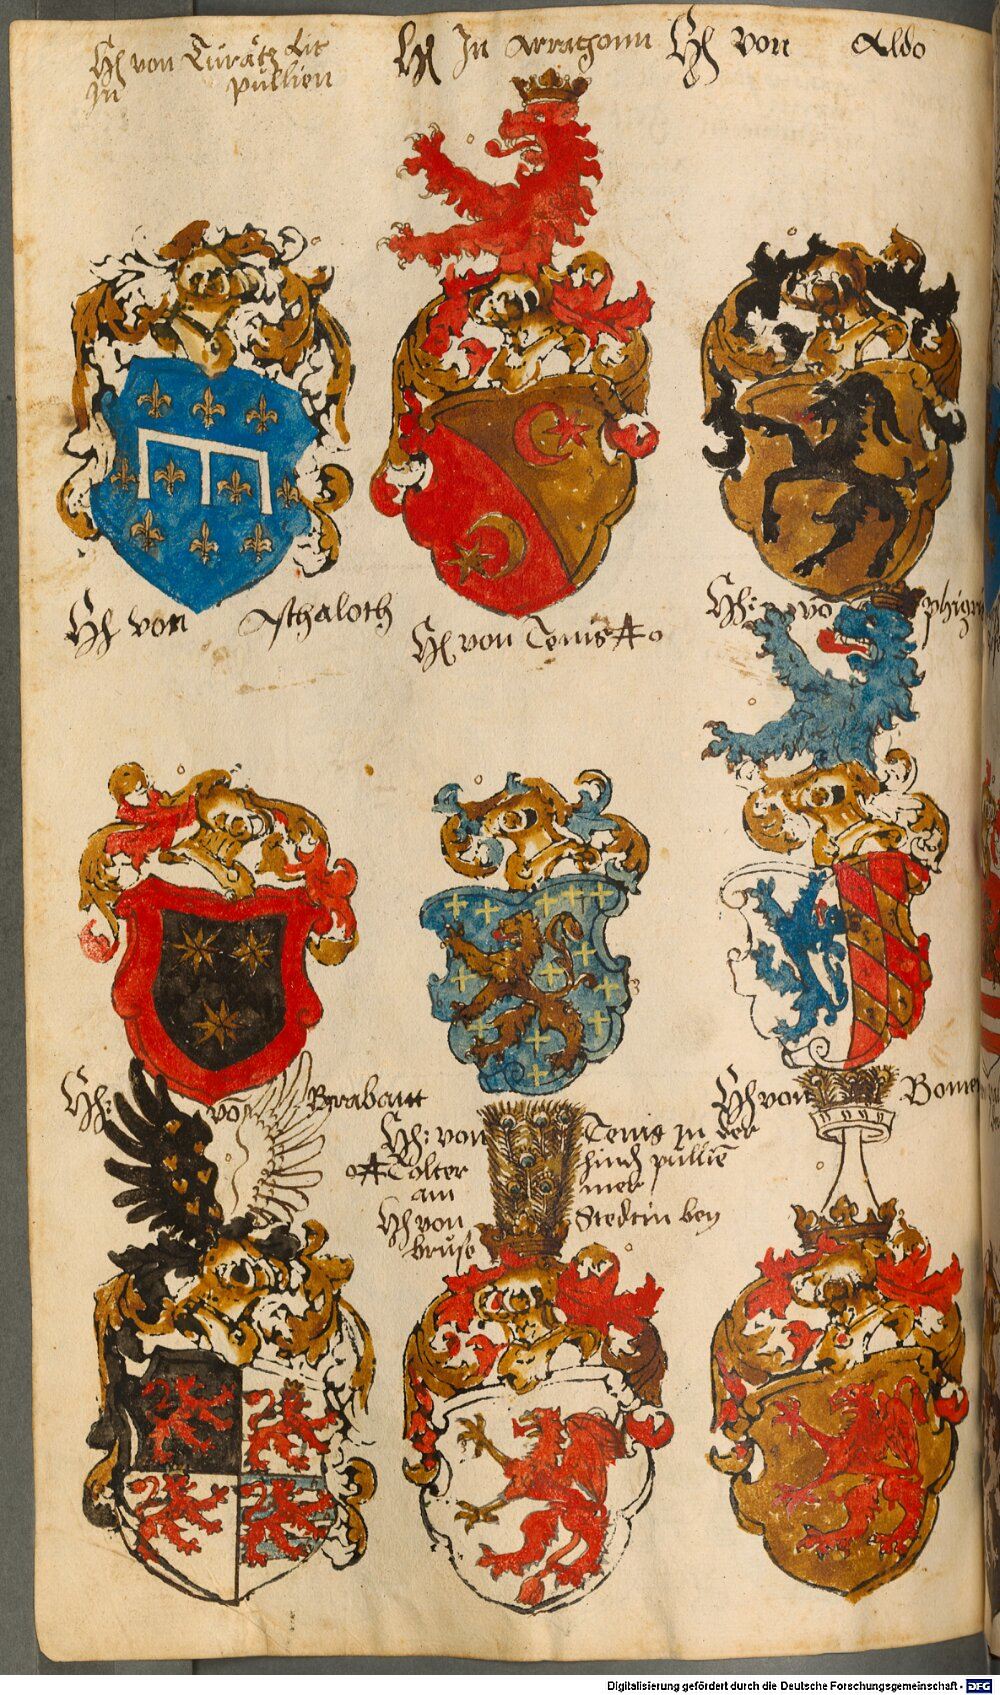 Hh von Turätz Lit
In pullien
Hh In Arragonn
Hh von Aldo
Hh von Asthaloth
Hh von Tenis
Hh: vo phigr
Hh: vo Brabant
Hh: von Tenis in der
Tolter hindh pullie
am mer
Hh von Stedtin bey
bruse
Hh von Bomen
Digitalisierung gefördert durch die Deutsche Forschungsgemeinschaft - DFG